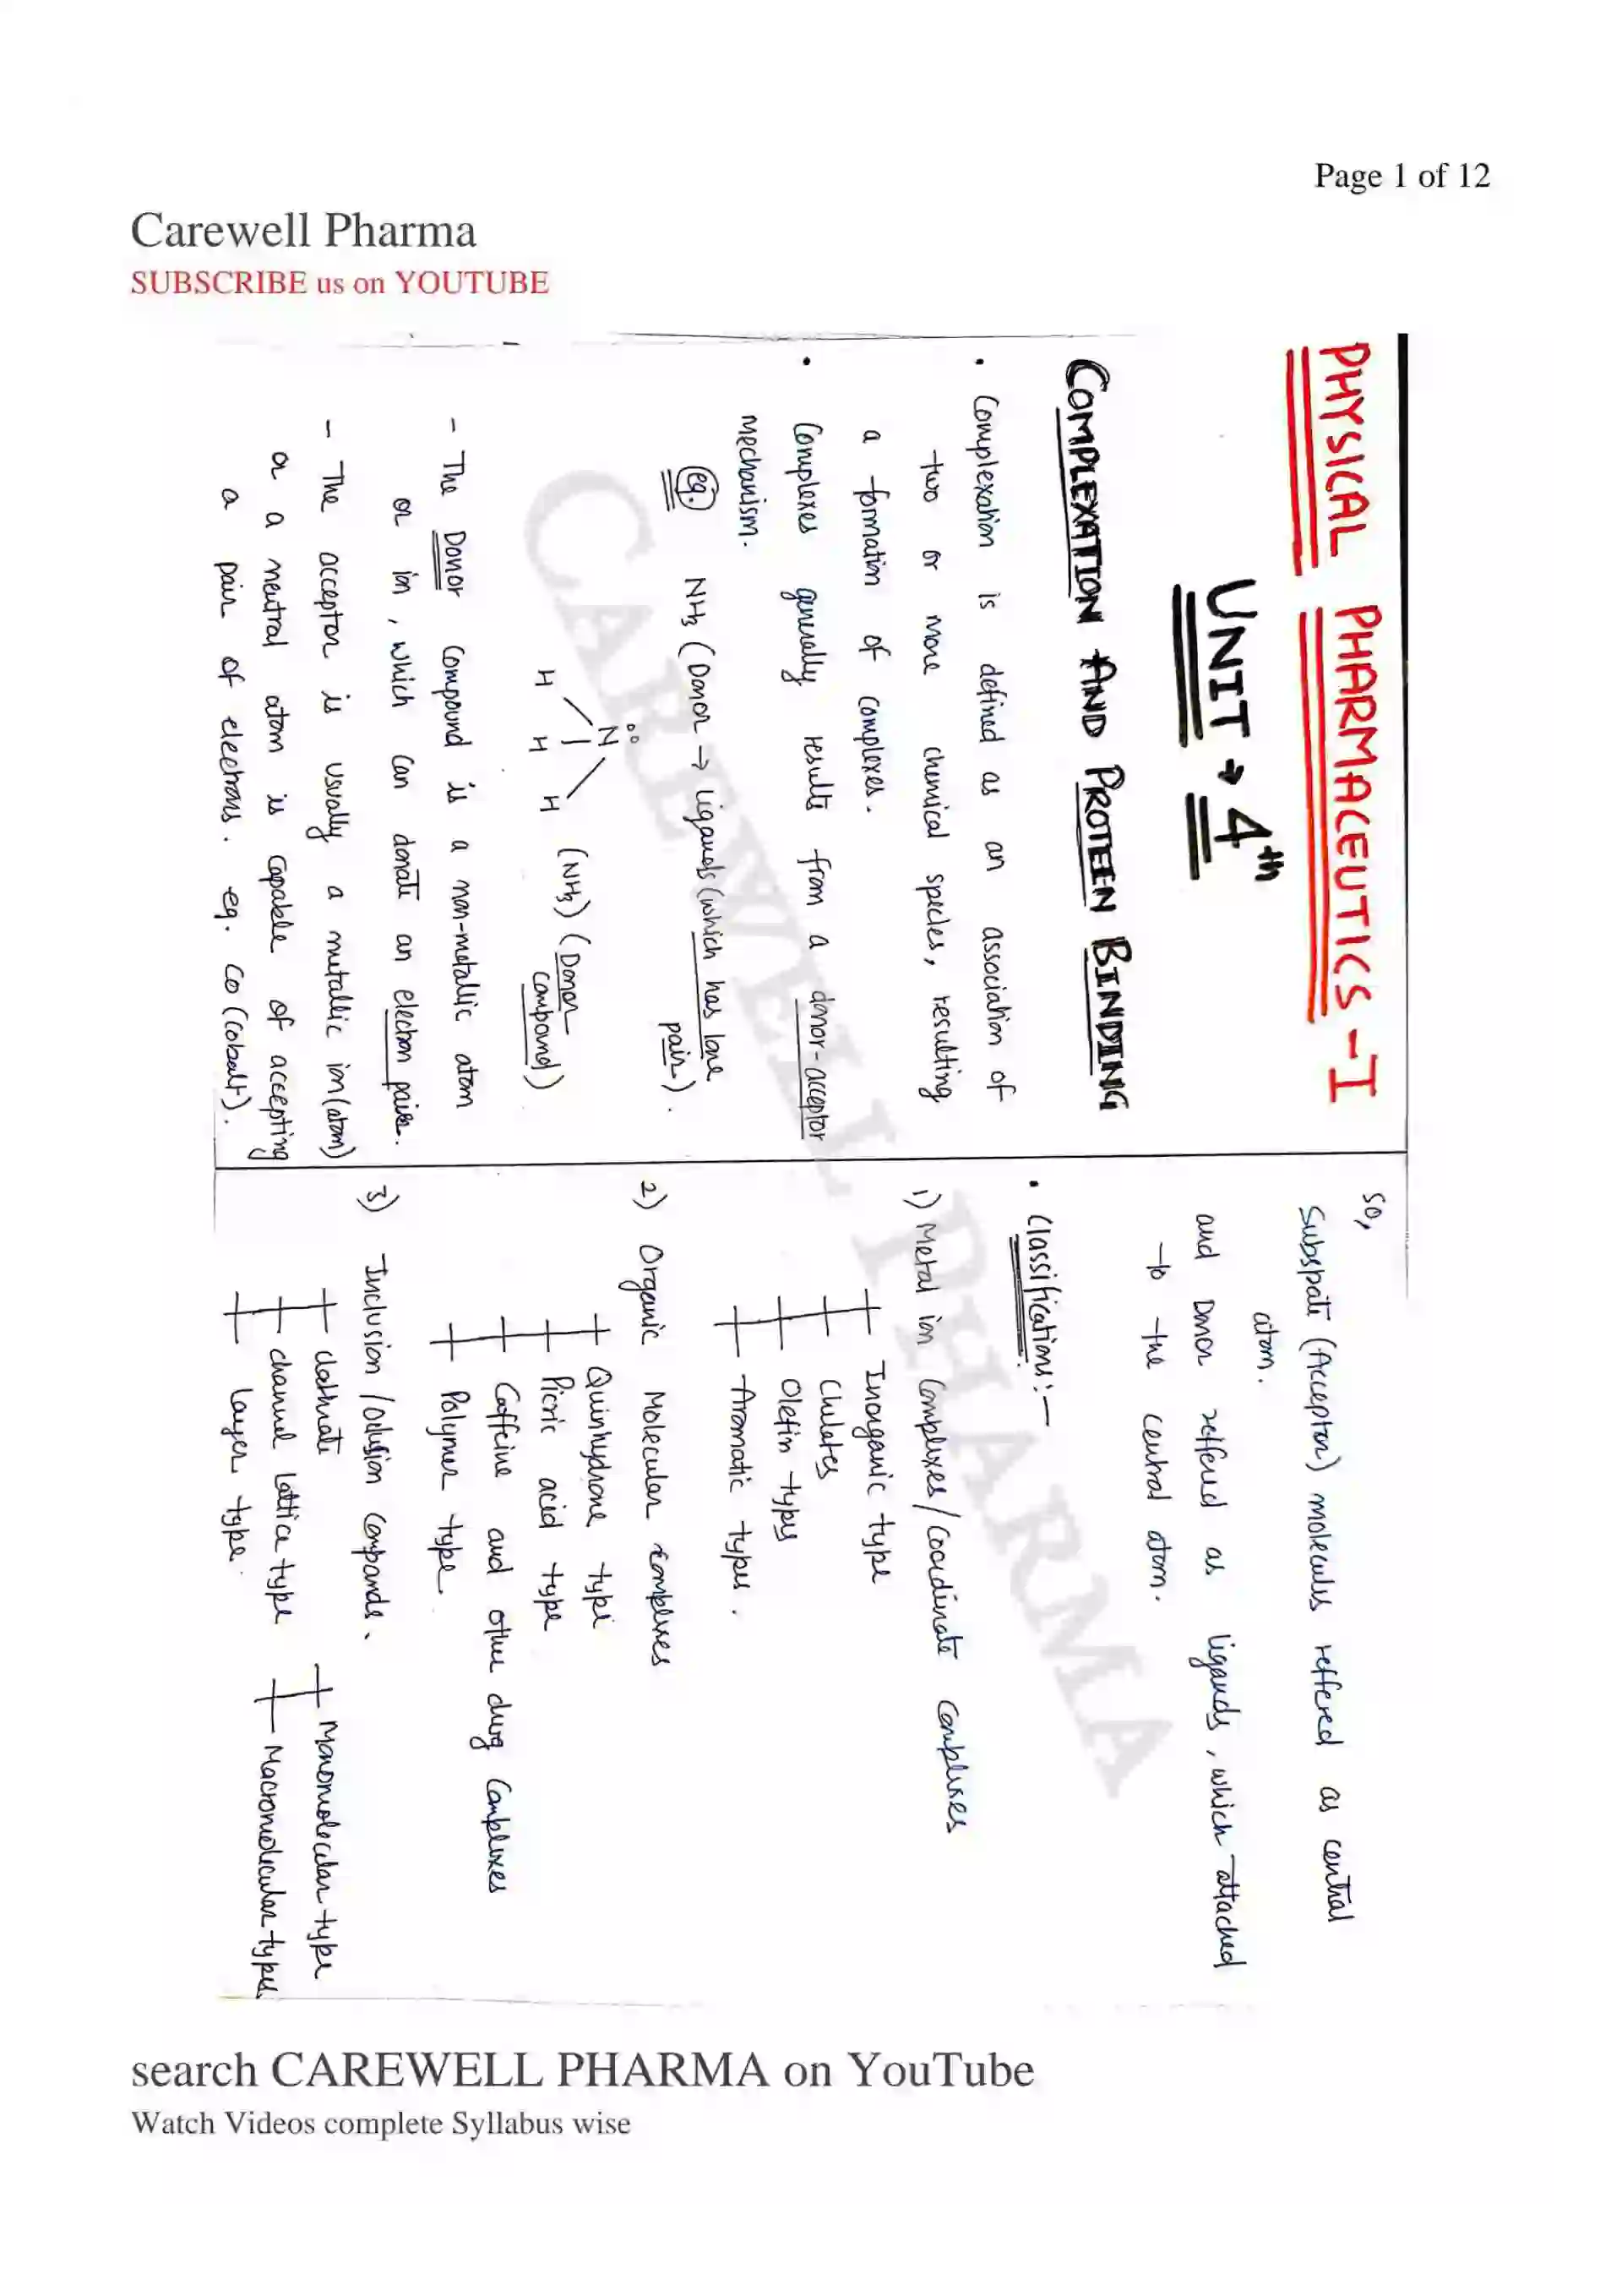 Page 1 of 12
Carewell Pharma
SUBSCRIBE us on YOUTUBE
PHYSICAL PHARMACEUTICS - I
UNIT → 4th
COMPLEXATION AND PROTEIN BINDING
• Complexation is defined as an association of
two or more chemical species, resulting
a formation of complexes.
• Complexes generally results from a donor-acceptor
mechanism.
eg. NH3 (Donor → ligands (which has lone
pair).
N
H H H
(NH3) (Donor
compound)
- The Donor compound is a non-metallic atom
or ion, which can donate an electron pair.
- The acceptor is usually a metallic ion (atom)
or a neutral atom is capable of accepting
a pair of electrons. eg. CO (cobalt).
So,
Subspate (Acceptor) molecules reffered as central
atom.
and Donor reffered as ligands, which attached
to the central atom.
• Classifications:-
1) Metal ion complexes/coordinate complexes
Inorganic type
Chelates
Olefin types
Aromatic types.
2) Organic Molecular complexes
Quinhydrone type
Picric acid type
Caffeine and other drug complexes
Polymer type.
3) Inclusion / compands.
clathrate
channel lattice type
Layer type.
Monomolecular type
Macromolecular types
CAREWELL PHARMA
search CAREWELL PHARMA on YouTube
Watch Videos complete Syllabus wise